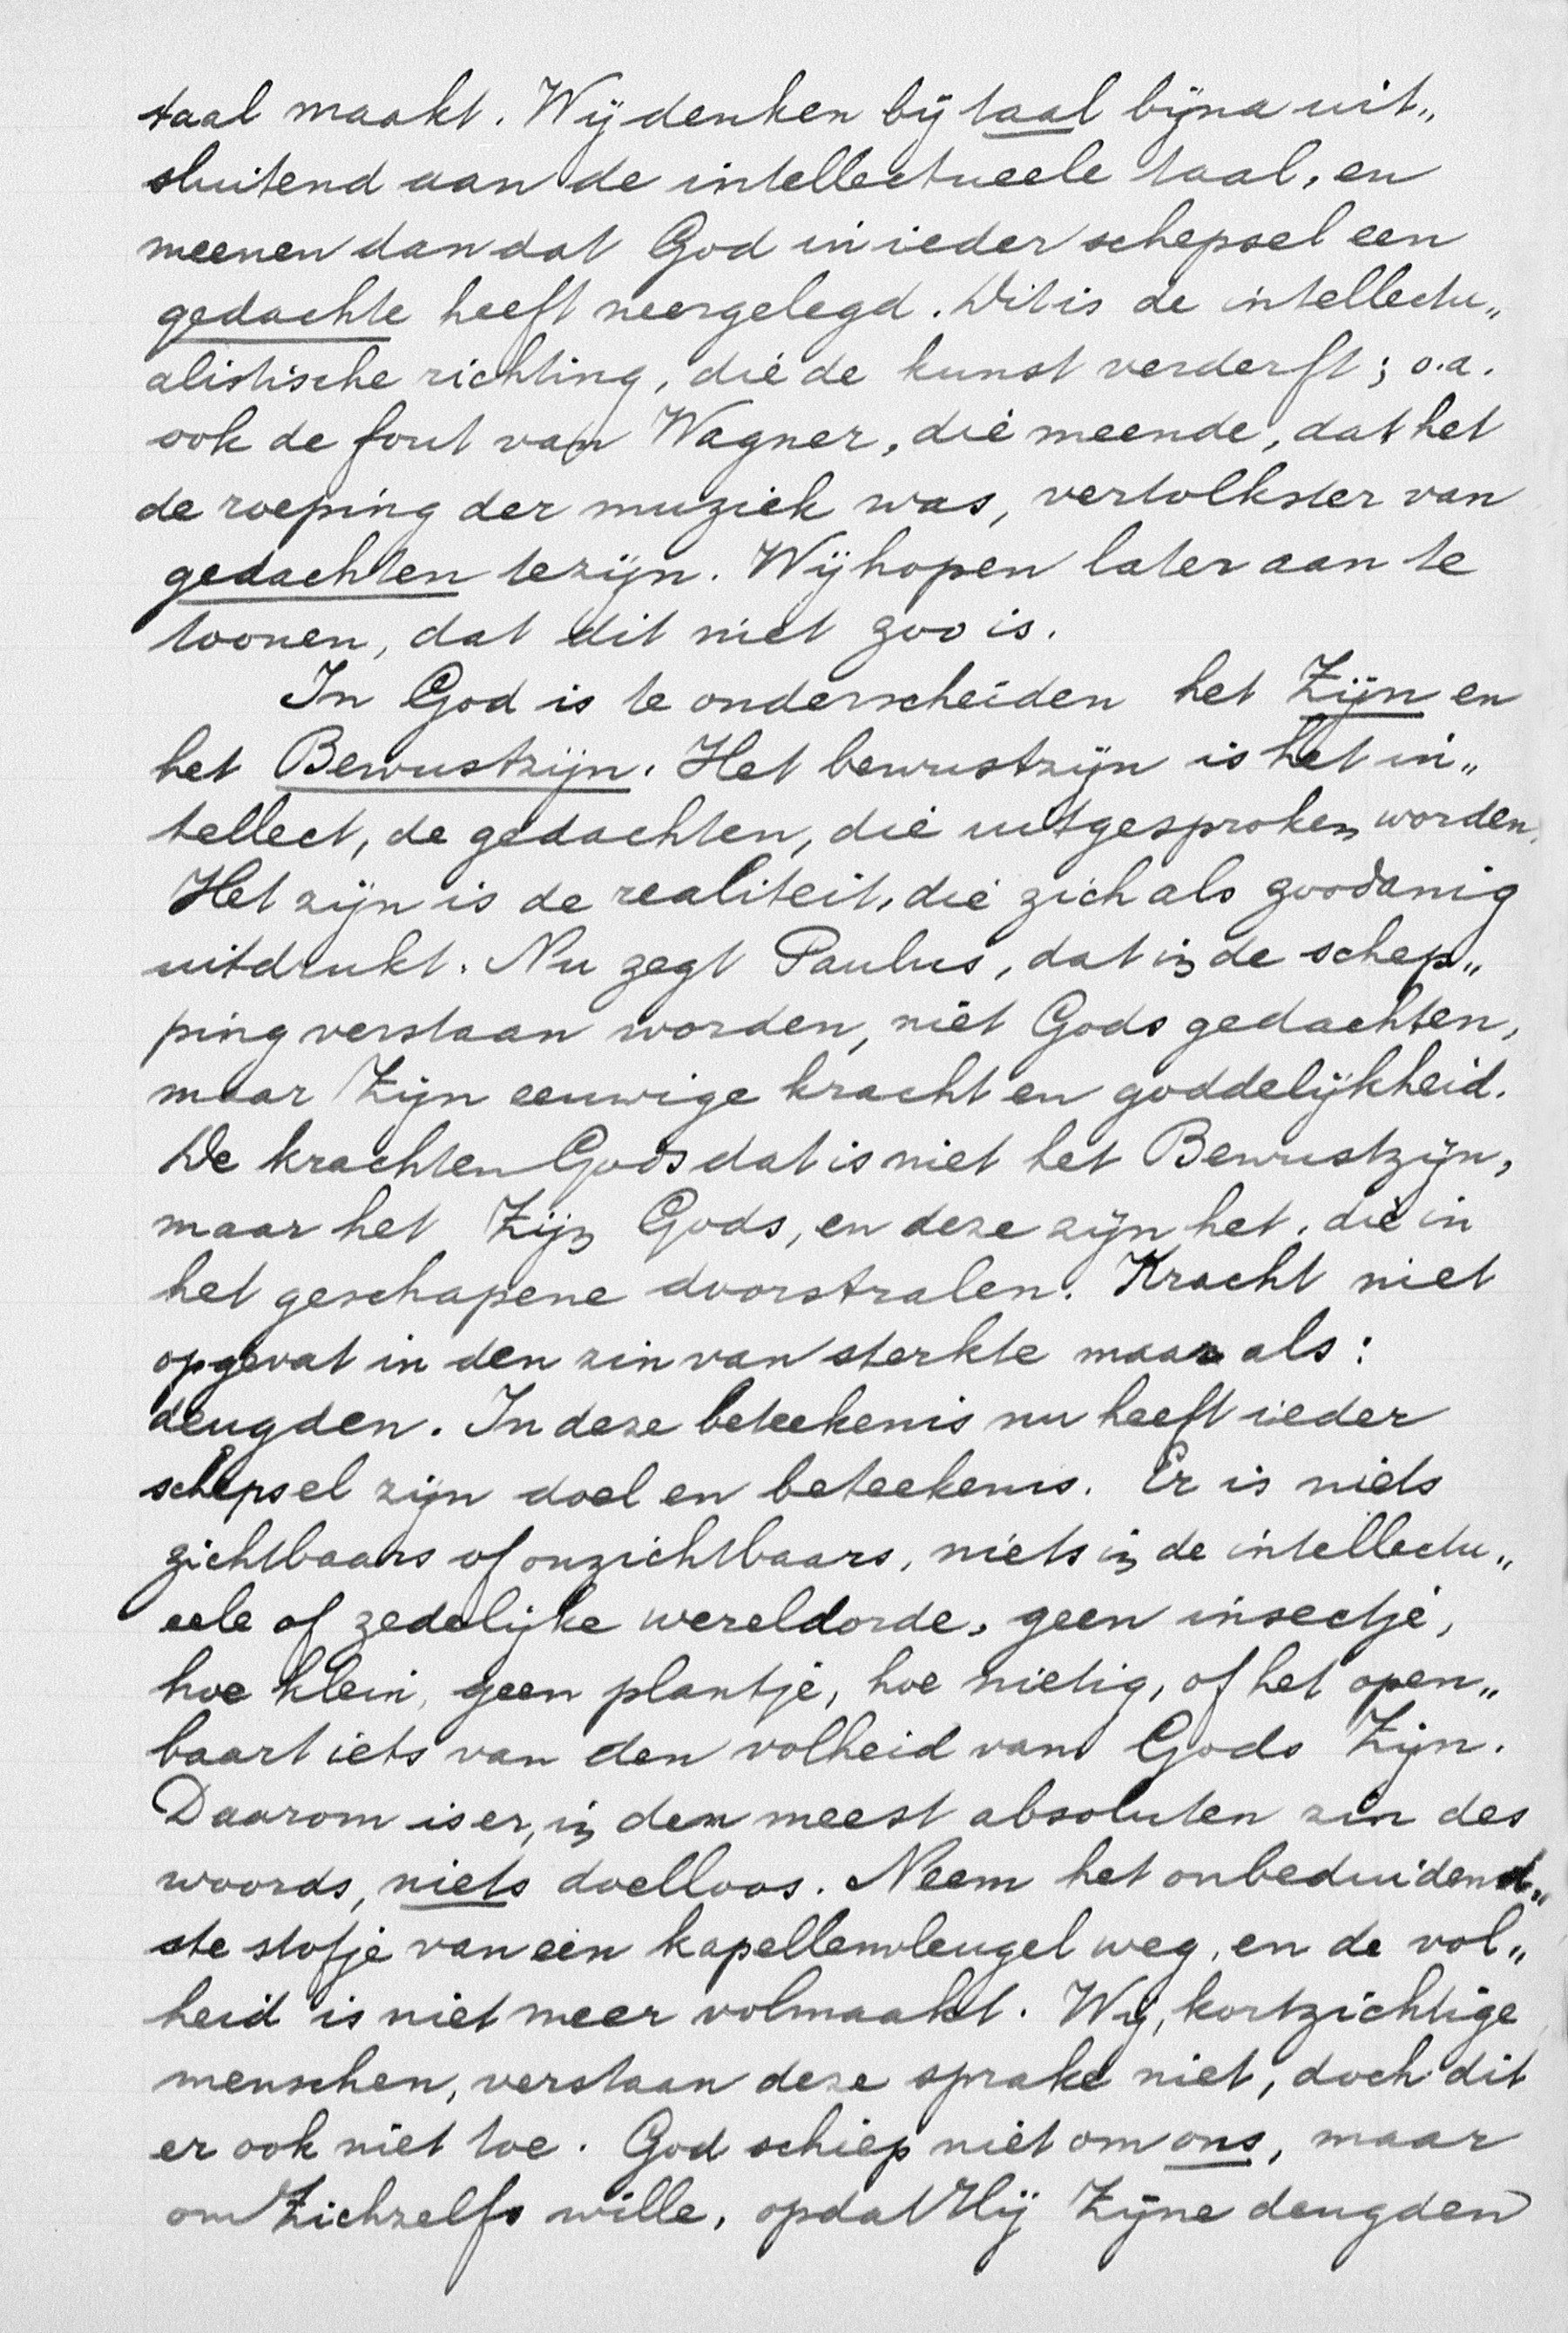 taal maakt. Wij denken bij taal bijna uit„
sluitend aan de intellectueele taal, en
meenen dan dat God in ieder schepsel een
gedachte heeft neergelegd. Dit is de intellectu„
alistische richting, die de kunst verderft; o.a.
ook de fout van Wagner, die meende, dat het
de roeping der muziek was, vertolkster van
gedachten te zijn. Wij hopen later aan te
toonen, dat dit niet zoo is.
In God is te onderscheiden het Zijn en
het Bewustzijn. Het bewustzijn is het in„
tellect, de gedachten, die uitgesproken worden.
Het zijn is de realiteit, die zich als zoodanig
uitdrukt. Nu zegt Paulus, dat in de schep„
ping verstaan worden, niet Gods gedachten,
maar Zijn eeuwige kracht en goddelijkheid.
De krachten Gods dat is niet het Bewustzijn,
maar het Zijn Gods, en deze zijn het, die in
het geschapene doorstralen. Kracht niet
opgevat in den zin van sterkte maar als:
deugden. In deze beteekenis nu heeft ieder
schepsel zijn doel en beteekenis. Er is niets
zichtbaars of onzichtbaars, niets in de intellectu„
eele of zedelijke wereldorde, geen insectje,
hoe klein, geen plantje, hoe nietig, of het open„
baart iets van den volheid van Gods Zijn.
Daarom is er, in den meest absoluten zin des
woords, niets doelloos. Neem het onbeduidend„
ste stofje van een kapellenvleugel weg, en de vol„
heid is niet meer volmaakt. Wij, kortzichtige
menschen, verstaan deze sprake niet, doch dit
er ook niet toe. God schiep niet om ons, maar
om Zichzelfs wille, opdat Hij Zijne deugden